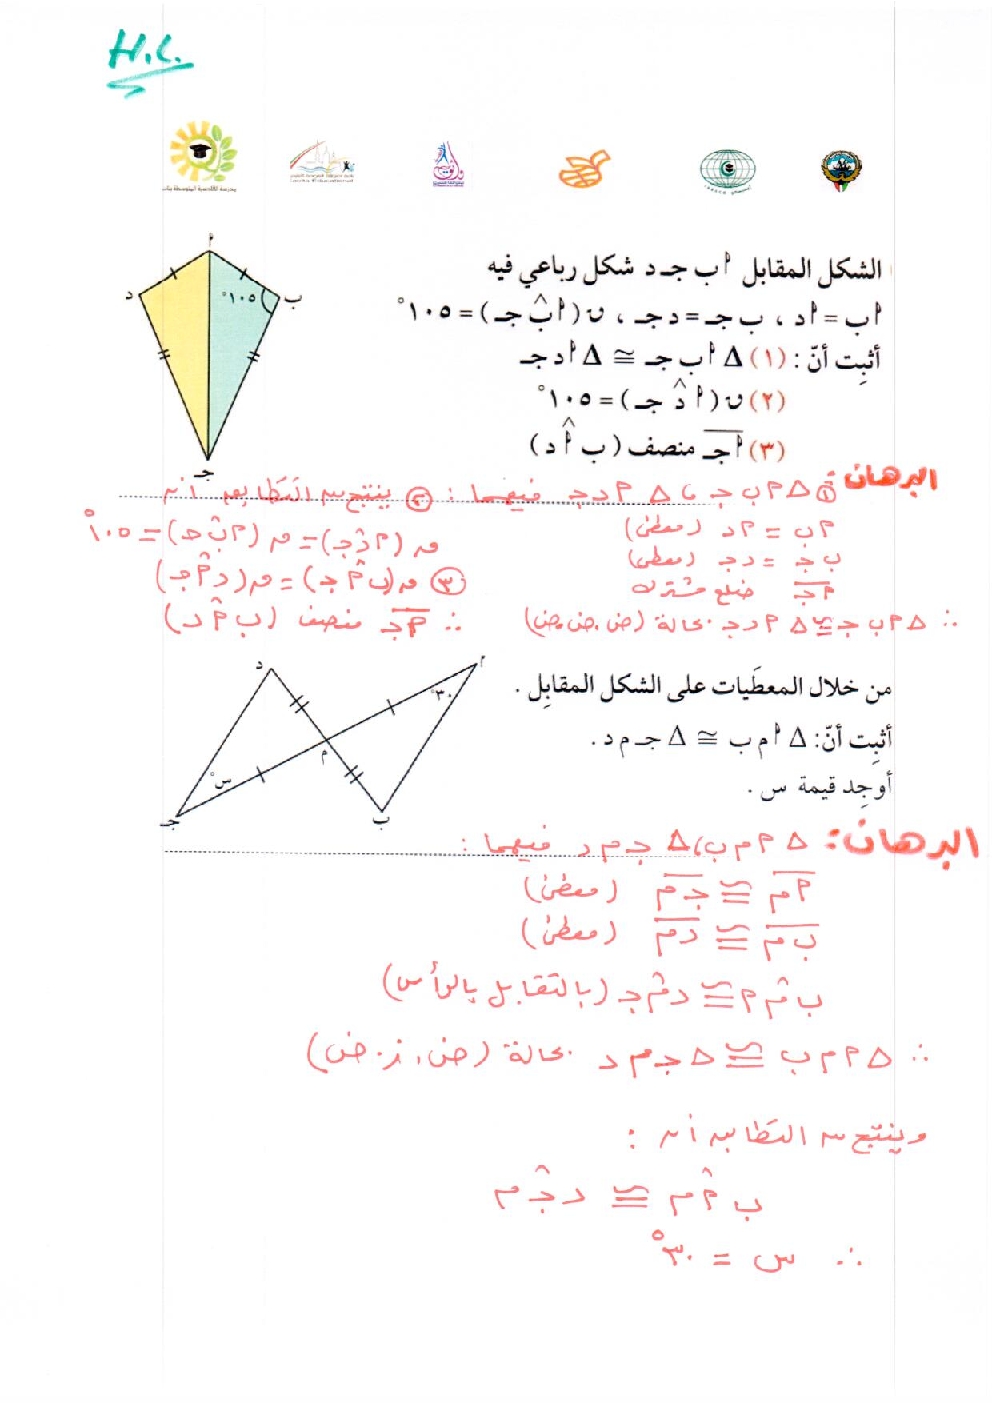 H.L.
أ
د
ب
١٠٥°
جـ
الشكل المقابل أ ب جـ د شكل رباعي فيه
أ ب = أ د ، ب جـ = د جـ ، ن ( أ بَ̂ جـ ) = ١٠٥°
أثبِت أنّ : (١) Δ أ ب جـ ≅ Δ أ د جـ
(٢) ن ( أ د̂ جـ ) = ١٠٥°
(٣) أ جـ منصف ( ب أ̂ د )
البرهان:
① Δ أ ب جـ ، Δ أ د جـ فيهما :
أ ب = أ د (معطى)
ب جـ = د جـ (معطى)
أ جـ ضلع مشترك
∴ Δ أ ب جـ ≅ Δ أ د جـ بحالة (ض.ض.ض)
② ينتج من التطابق أن
ن ( أ د̂ جـ ) = ن ( أ ب̂ جـ ) = ١٠٥°
③ ن ( ب أ̂ جـ ) = ن ( د أ̂ جـ )
∴ أ جـ منصف ( ب أ̂ د )
من خلال المعطَيات على الشكل المقابِل .
أثبِت أنّ: Δ أ م ب ≅ Δ جـ م د .
أوجِد قيمة س .
د
أ
٣٠°
م
س°
جـ
ب
البرهان: Δ أ م ب ، Δ جـ م د فيهما :
أ م ≅ جـ م (معطى)
ب م ≅ د م (معطى)
ب م̂ أ ≅ د م̂ جـ (بالتقابل بالرأس)
∴ Δ أ م ب ≅ Δ جـ م د بحالة (ض.ز.ض)
وينتج من التطابق أن :
ب أ̂ م ≅ د جـ̂ م
∴ س = ٣٠°